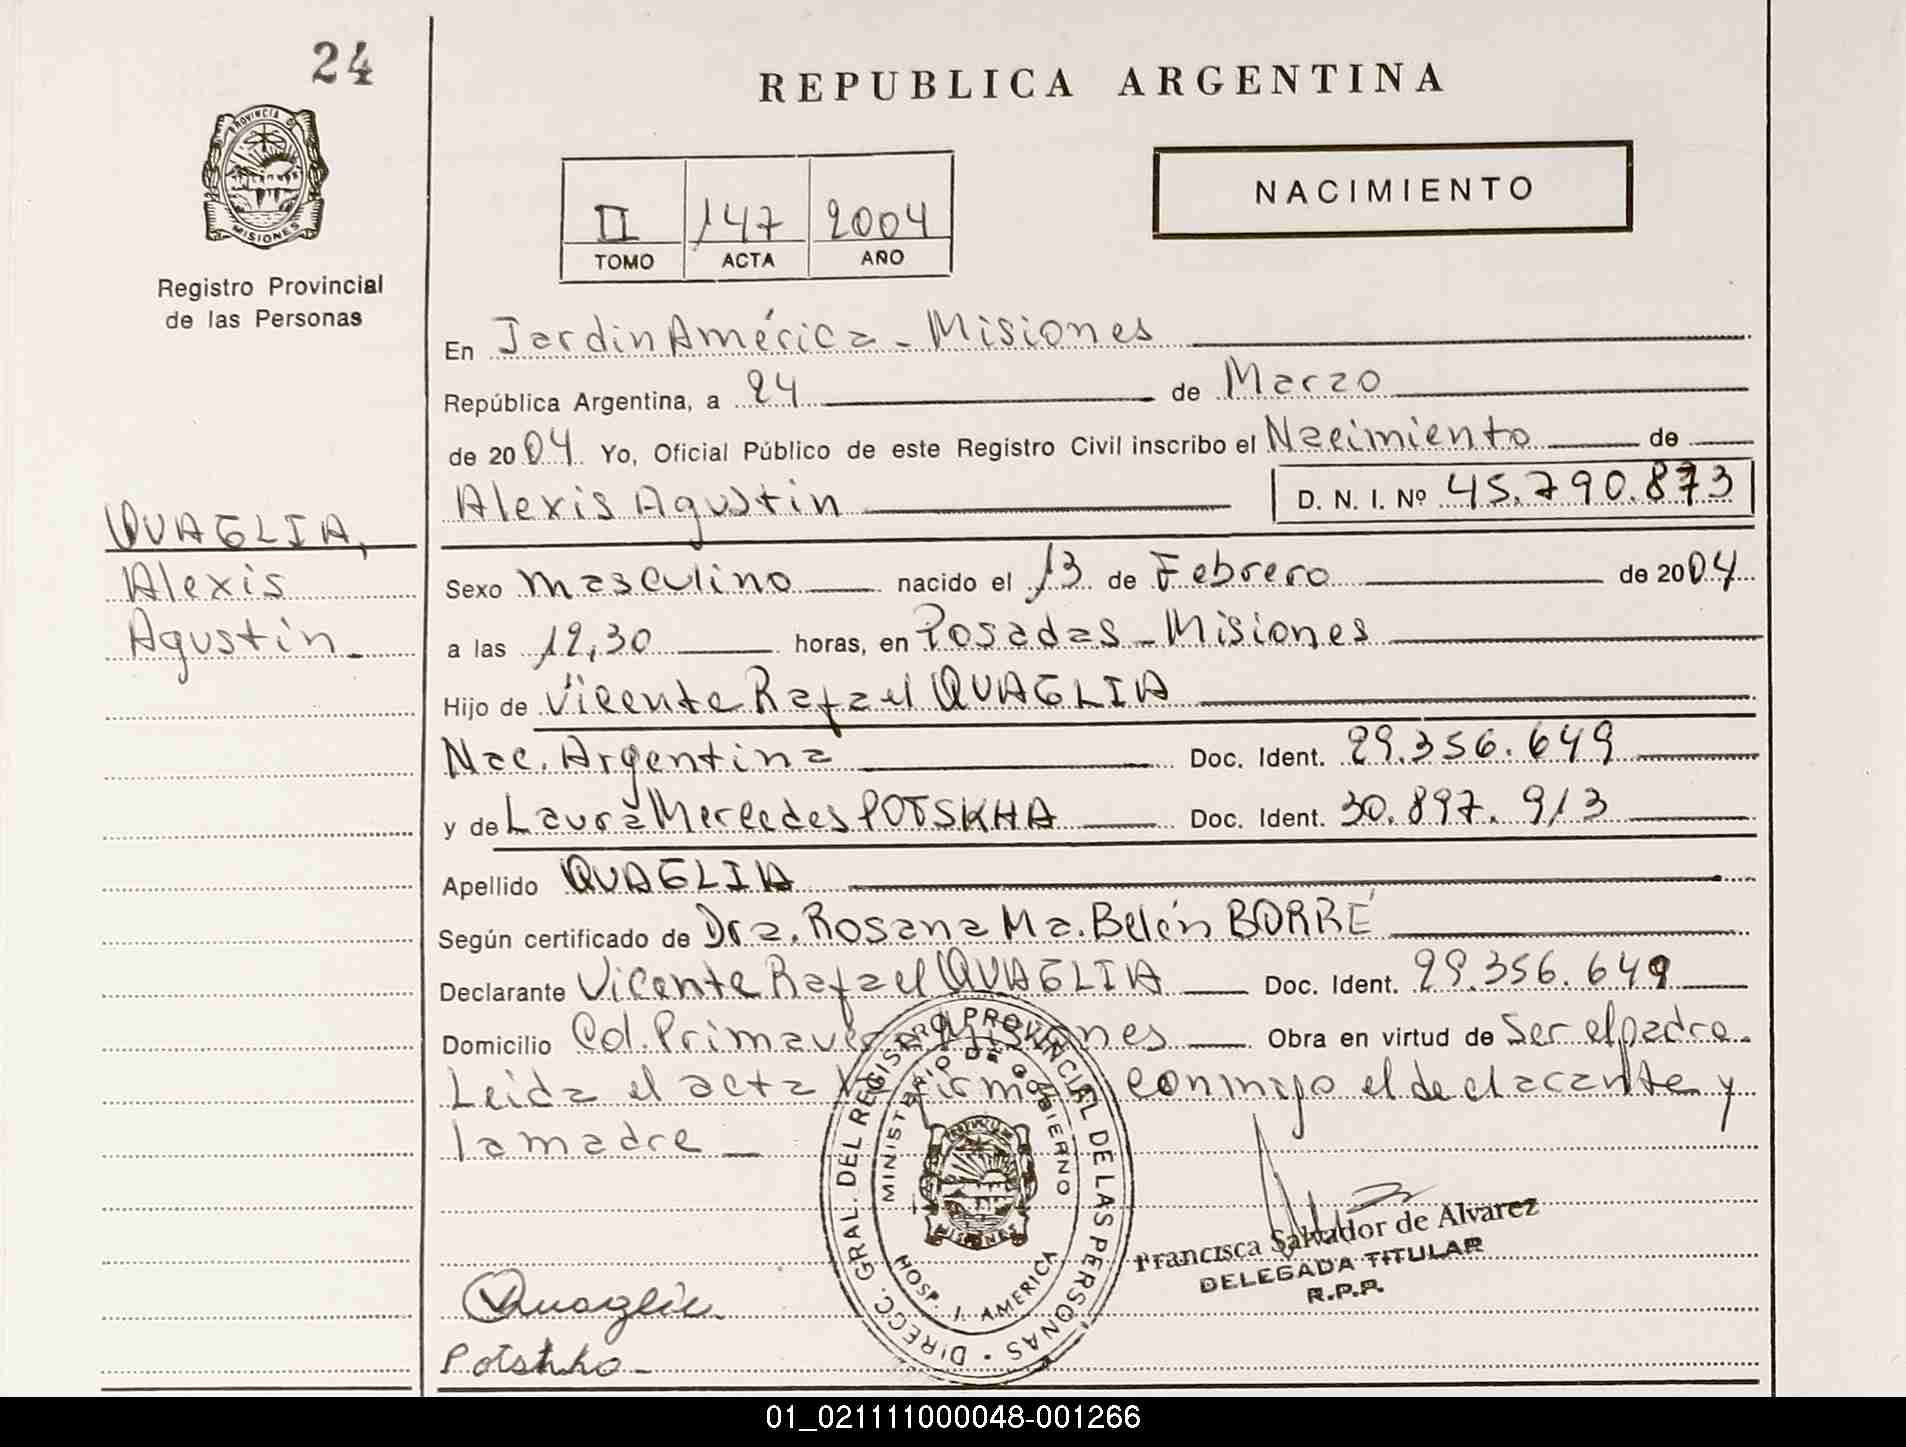 24
REPUBLICA ARGENTINA
PROVINCIA DE
MISIONES
Registro Provincial
de las Personas
II 147 2004
TOMO ACTA AÑO
NACIMIENTO
En Jardin América - Misiones
República Argentina, a 24 de Marzo
de 2004 Yo, Oficial Público de este Registro Civil inscribo el Nacimiento de
Alexis Agustin D. N. I. Nº 45.790.873
QUAGLIA,
Alexis
Agustin
Sexo masculino nacido el 13 de Febrero de 2004
a las 12,30 horas, en Posadas - Misiones
Hijo de Vicente Rafael QUAGLIA
Nac. Argentina Doc. Ident. 29.356.649
y de Laura Mercedes POTSKHA Doc. Ident. 30.897.913
Apellido QUAGLIA
Según certificado de Dra. Rosana Ma. Belén BORRÉ
Declarante Vicente Rafael QUAGLIA Doc. Ident. 29.356.649
Domicilio Col. Primavera Misiones Obra en virtud de Ser el padre.
Leida el acta la firman conmigo el declarante y
la madre
DIRECC. GRAL. DEL REGISTRO PROVINCIAL DE LAS PERSONAS
MINISTERIO DE GOBIERNO
HOSP. J. AMERICA
MISIONES
Francisca Salvador de Alvarez
DELEGADA TITULAR
R.P.P.
Quaglia
01_021111000048-001266